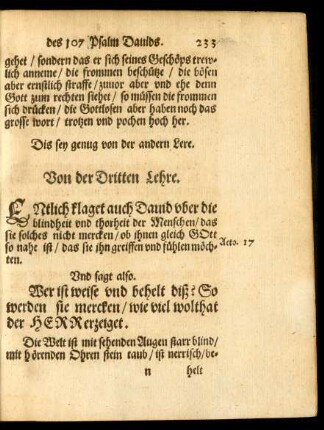 des 107 Psalm Dauids. 233
gehet / sondern das er sich seines Geschöps trew-
lich anneme / die frommen beschütze / die bösen
aber ernstlich straffe / zuuor aber vnd ehe denn
Gott zum rechten siehet / so müssen die frommen
sich drücken / die Gottlosen aber haben noch das
grosse wort / trotzen vnd pochen hoch her.
Dis sey genug von der andern Lere.
Von der Dritten Lehre.
ENtlich klaget auch Dauid vber die
blindheit vnd thorheit der Menschen / das
sie solches nicht mercken / ob ihnen gleich GOtt
so nahe ist / das sie ihn greiffen vnd fühlen möch-
ten.
Acto. 17
Vnd sagt also.
Wer ist weise vnd behelt diß? So
werden sie mercken / wie viel wolthat
der HERR erzeiget.
Die Welt ist mit sehenden Augen starr blind /
mit hörenden Ohren stein taub / ist nerrisch / be-
n helt